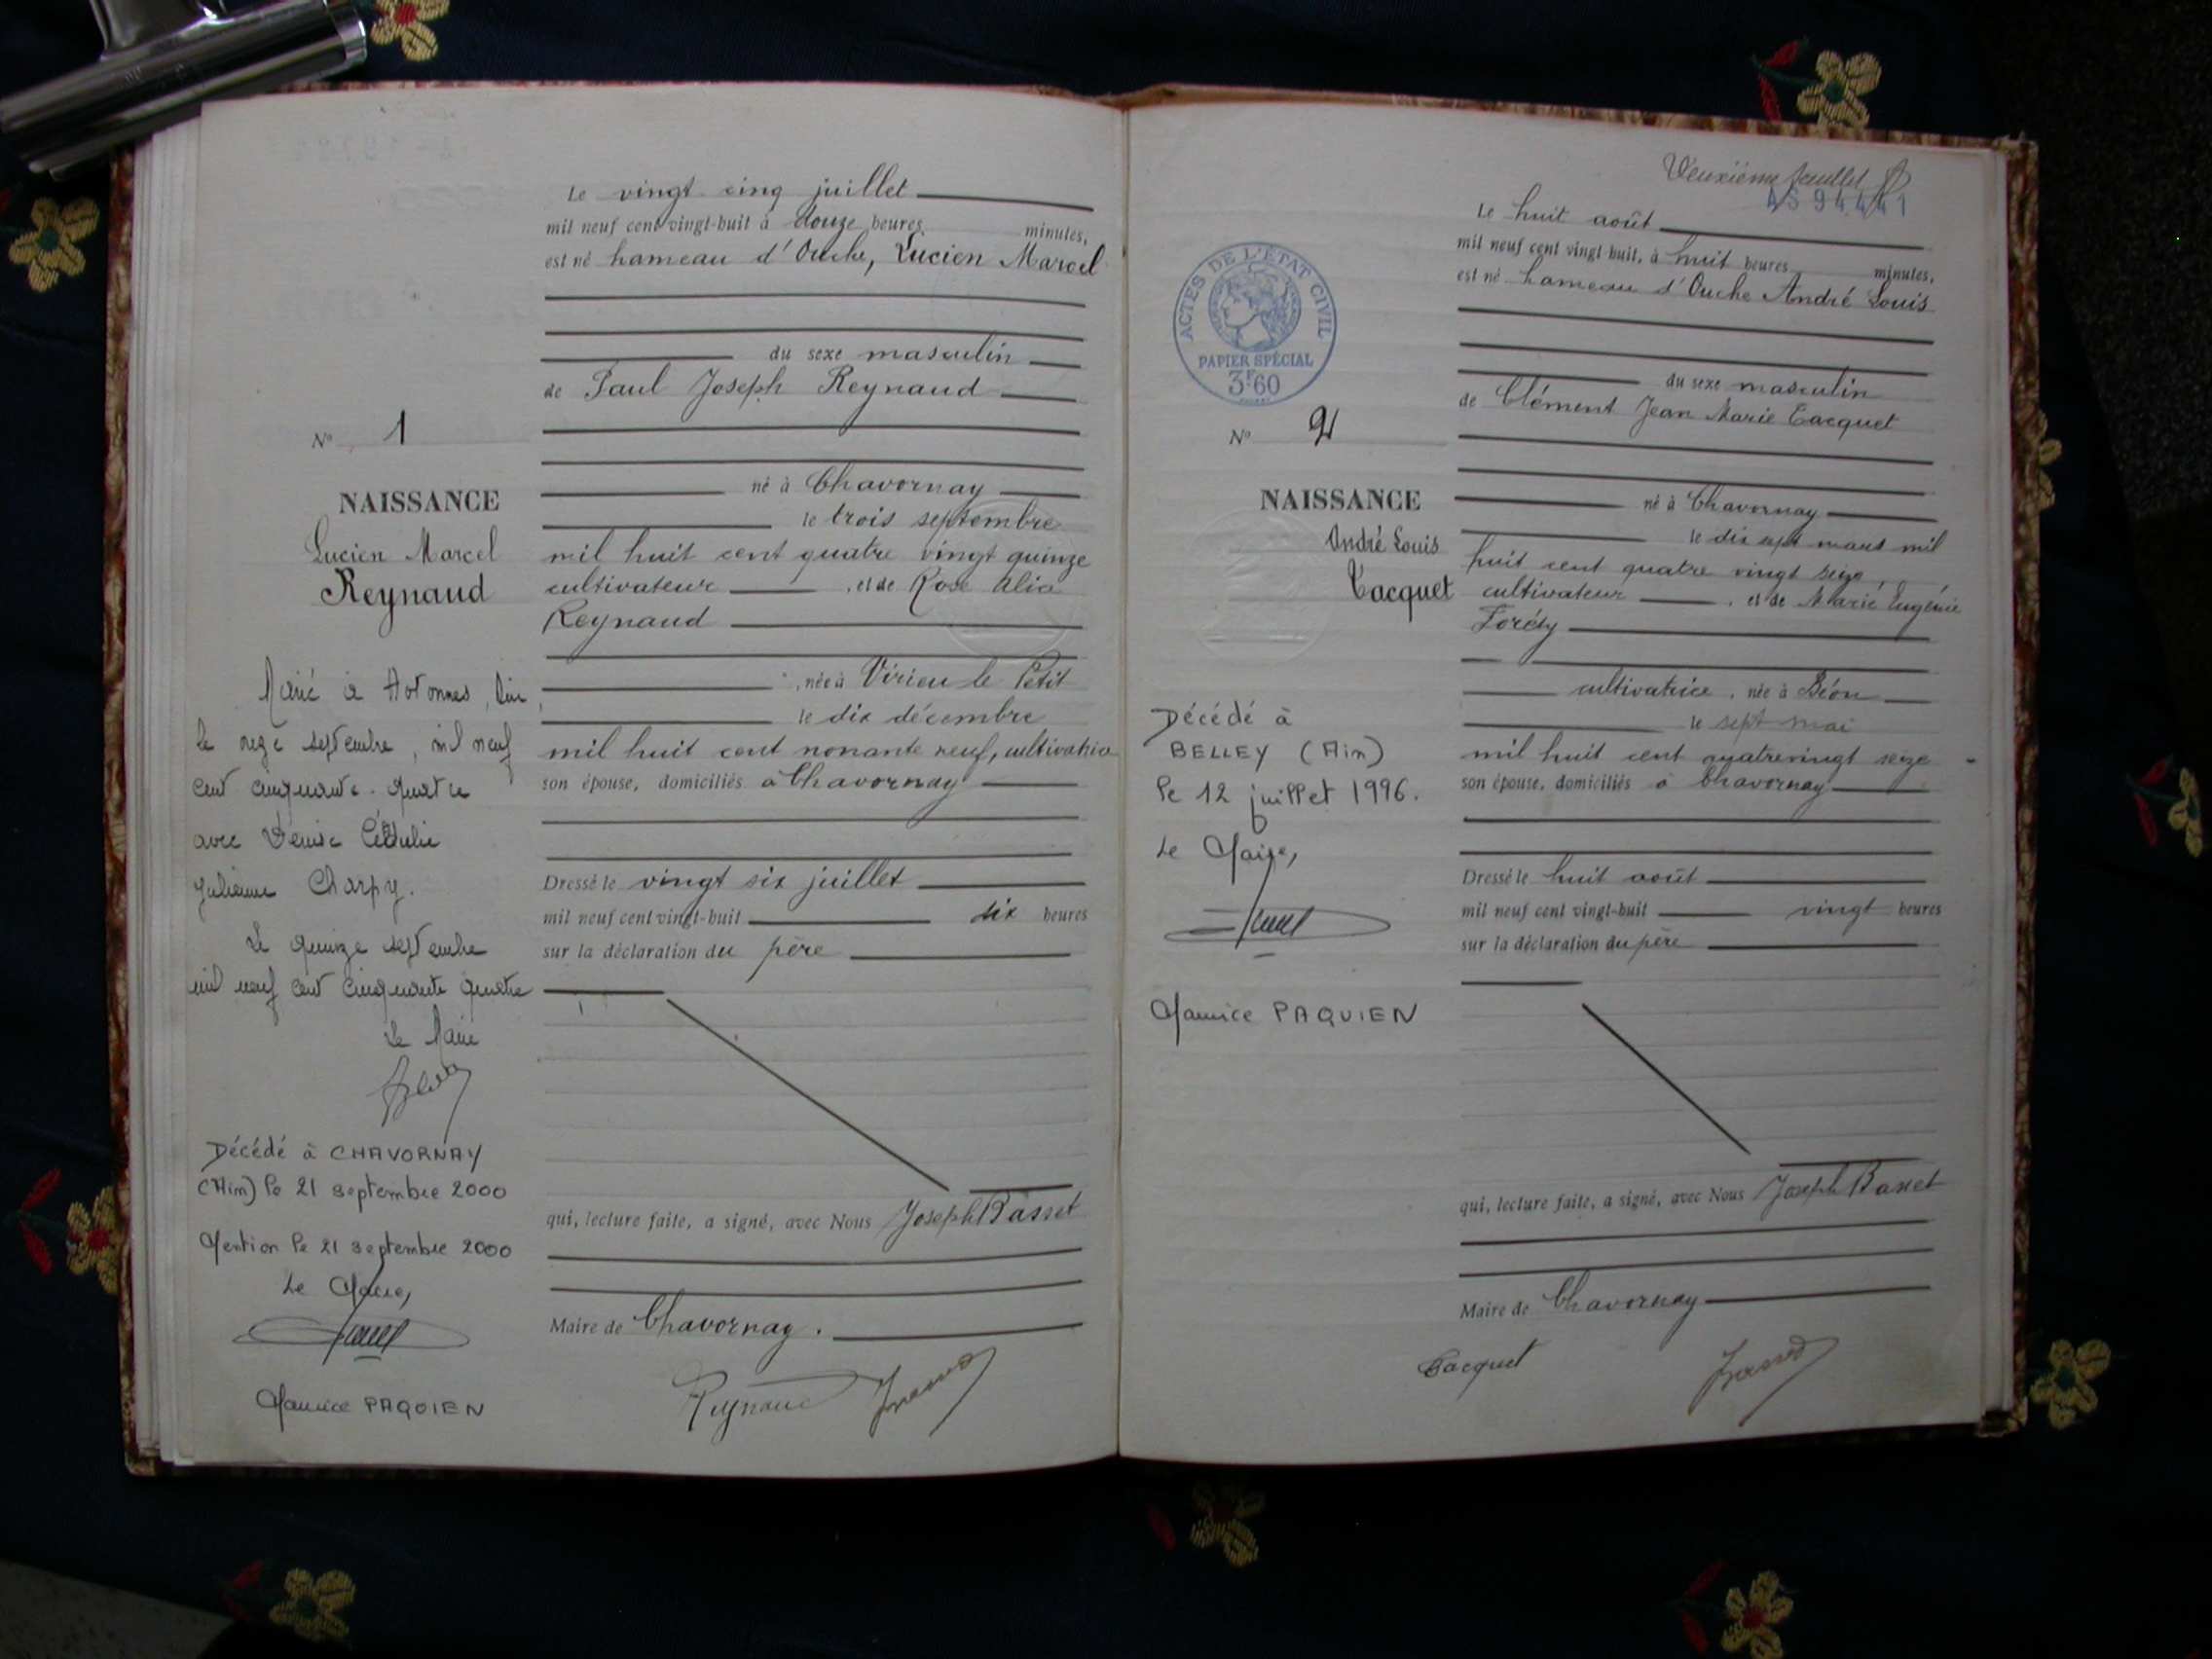 Le vingt cinq juillet
mil neuf cent vingt-huit à douze heures minutes,
est né hameau d'Ouche, Lucien Marcel
du sexe masculin
de Paul Joseph Reynaud
né à Chavornay
le trois septembre
mil huit cent quatre vingt quinze
cultivateur , et de Rose Alice
Reynaud
, née à Virieu le Petit
le dix décembre
mil huit cent nonante neuf, cultivatrice
son épouse, domiciliés à Chavornay
Dressé le vingt six juillet
mil neuf cent vingt-huit dix heures
sur la déclaration du père
qui, lecture faite, a signé, avec Nous Joseph Basset
Maire de Chavornay.
Reynaud
N° 1
NAISSANCE
Lucien Marcel
Reynaud
Marié à
le onze septembre, mil neuf
cent cinquante-quatre
avec Denise
Julienne Charpy.
Le quinze septembre
mil neuf cent cinquante quatre
Le Maire
Décédé à CHAVORNAY
(Ain) le 21 septembre 2000
Mention le 21 septembre 2000
Le Maire,
Maurice PAQUIEN
Deuxième feuillet
A5 94441
Le huit août
mil neuf cent vingt-huit, à huit heures minutes,
est né hameau d'Ouche André Louis
du sexe masculin
de Clément Jean Marie Tacquet
né à Chavornay
le dix sept mars mil
huit cent quatre vingt seize,
cultivateur , et de Marie Eugénie
Foréty
cultivatrice, née à Béon
le sept mai
mil huit cent quatrevingt seize
son épouse, domiciliés à Chavornay
Dressé le huit août
mil neuf cent vingt-huit vingt heures
sur la déclaration du père
qui, lecture faite, a signé, avec Nous Joseph Basset
Maire de Chavornay
Tacquet
ACTES DE L'ÉTAT CIVIL
PAPIER SPÉCIAL
3F60
N° 2
NAISSANCE
André Louis
Tacquet
Décédé à
BELLEY (Ain)
le 12 juillet 1996.
Le Maire,
Maurice PAQUIEN